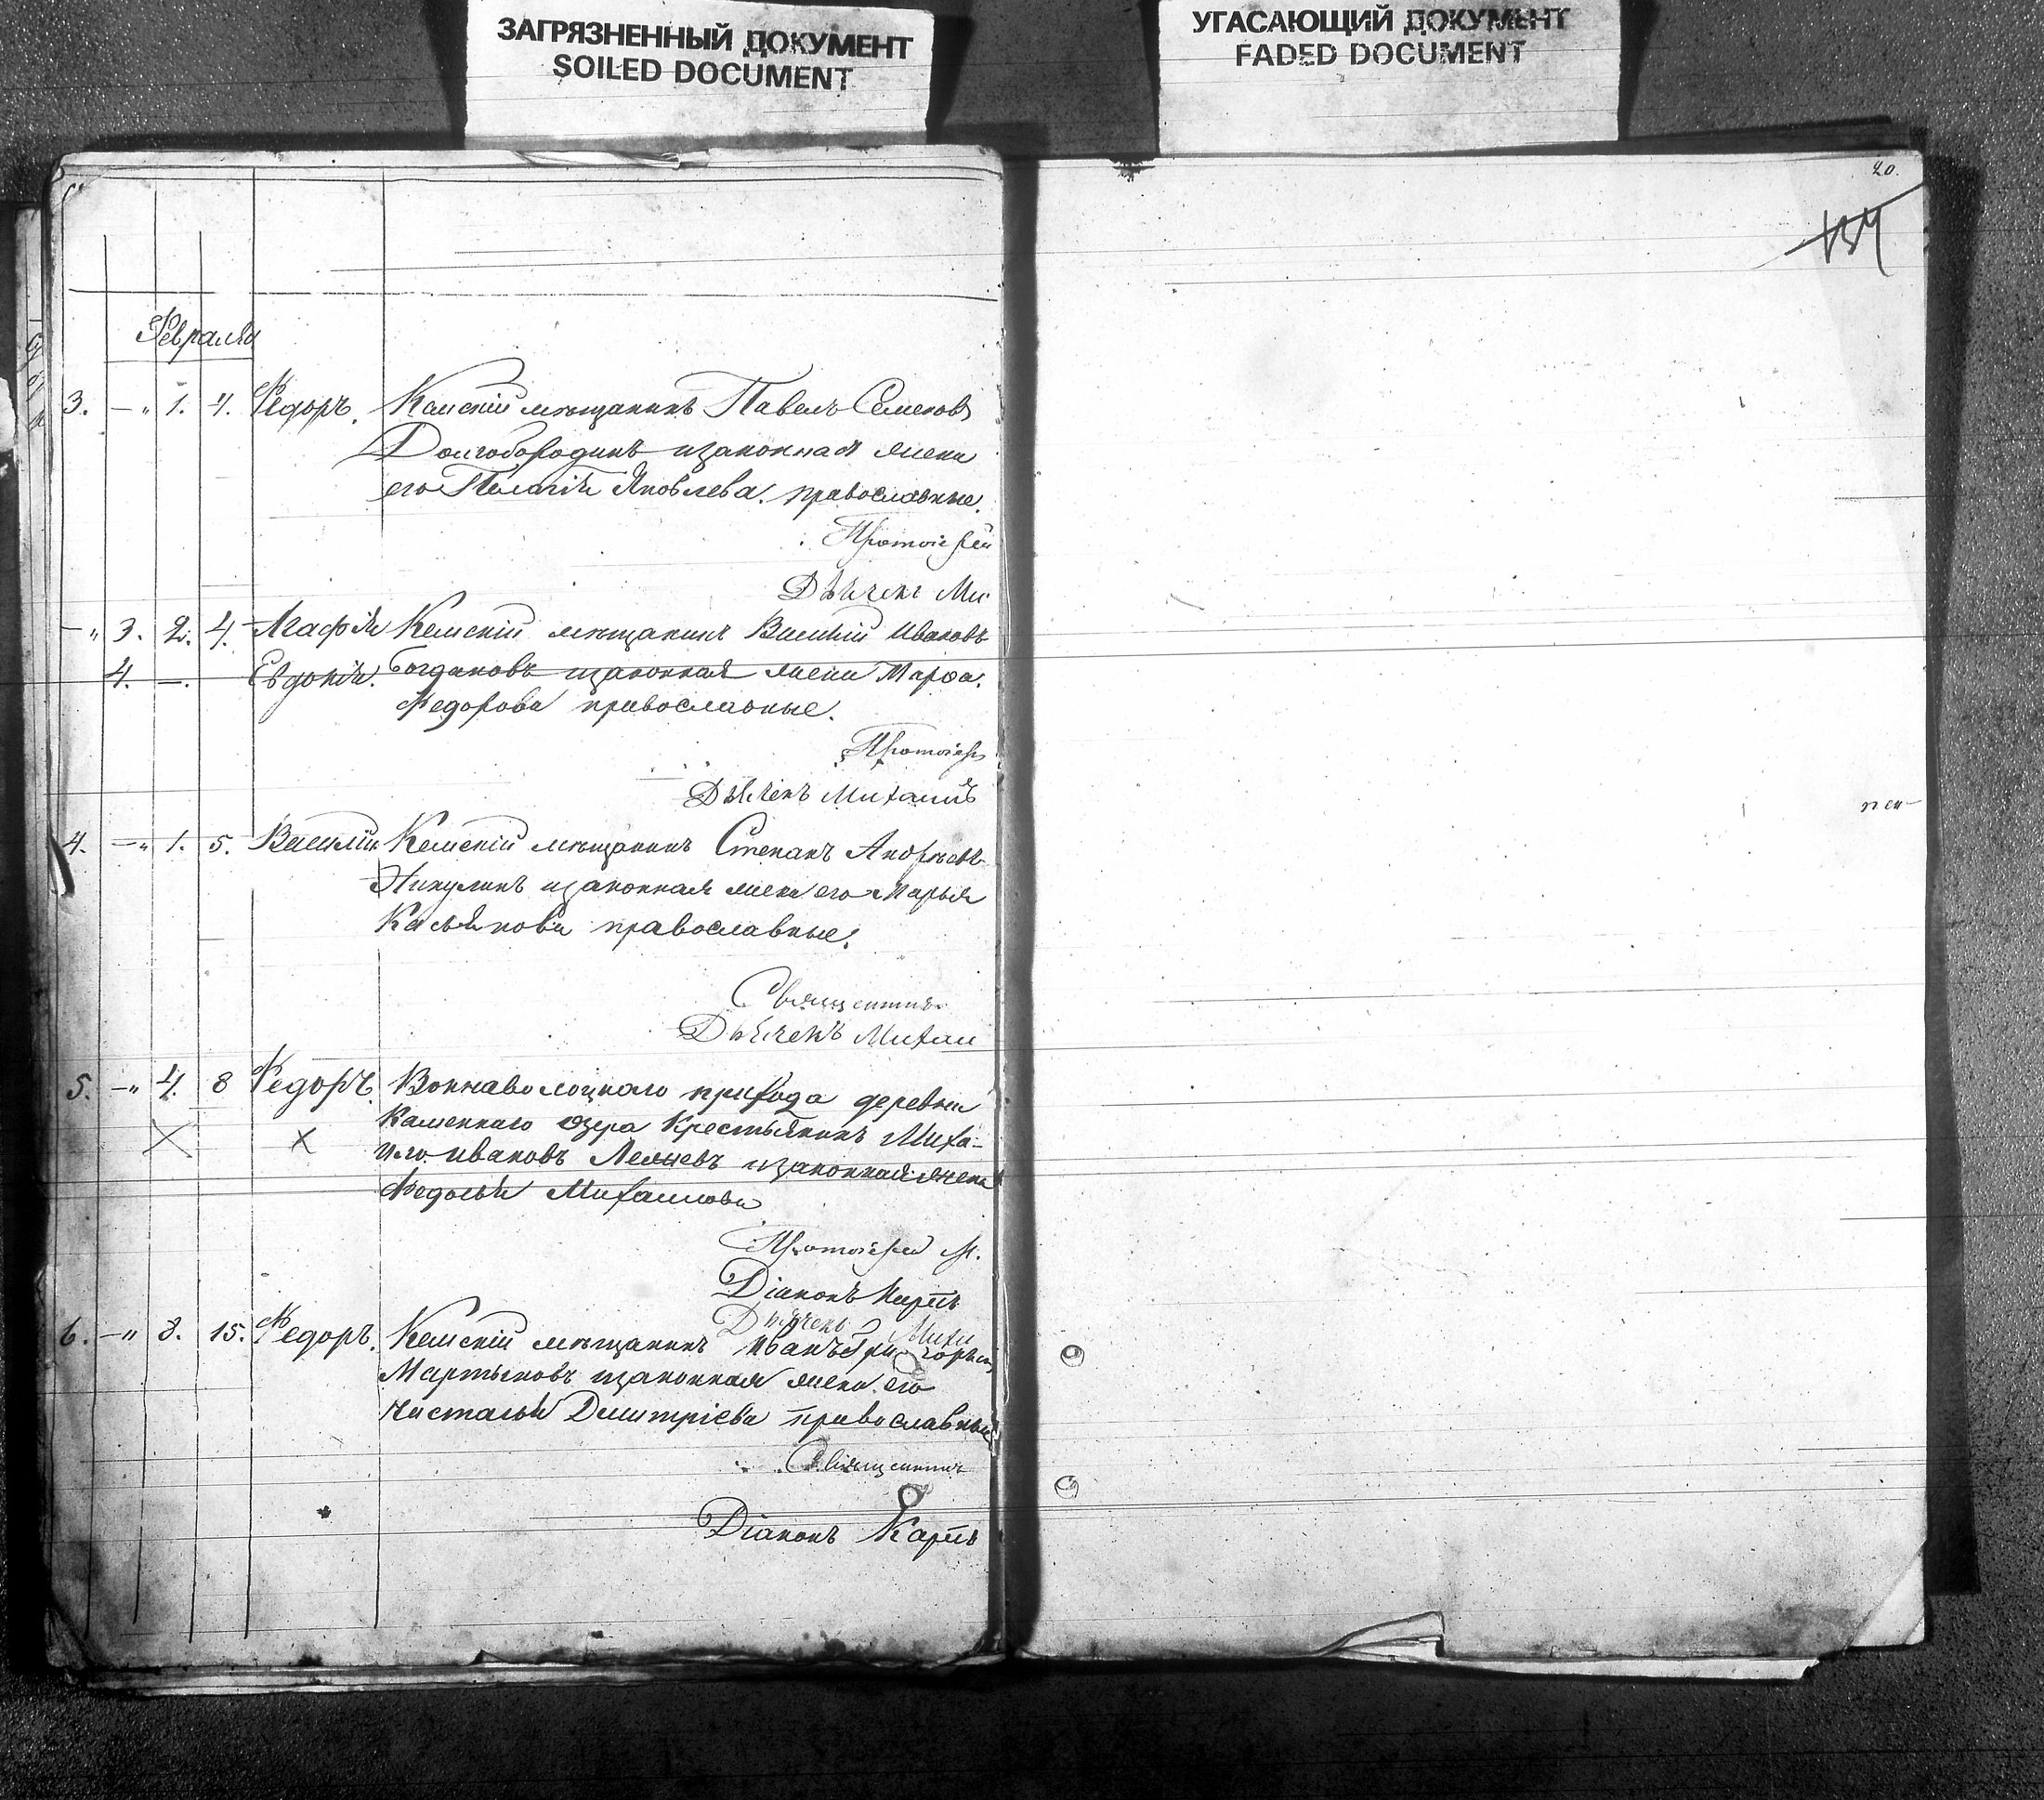 ЗАГРЯЗНЕННЫЙ ДОКУМЕНТ
SOILED DOCUMENT
УГАСАЮЩИЙ ДОКУМЕНТ
FADED DOCUMENT
20.
Февраля
3. – „ 1. 4. Ѳедоръ. Кемскій мѣщанинъ Павелъ Семеновъ
Долгобородинъ изаконная жена
его Пелагія Яковлева. православные.
Протоіерей
Дьячекъ Ми
– „ 3. 2. 4. Агафія Кемскій мѣщанинъ Василій Ивановъ
4. –. Евдокія. Богдановъ изаконная жена Марѳа.
Ѳедорова православные.
Протоіер
Дьячекъ Михаилъ
4. – „ 1. 5. Василій Кемскій мѣщанинъ Степанъ Андреевъ
Никулинъ изаконная жена его Марья
Касьянова православные.
Священник
Дьячекъ Михаи
5. – „ 4. 8 Ѳедоръ. Вокнаволоцкаго прихода деревни
Каменнаго озера Крестьянинъ Миха-
ило Ивановъ изаконная жена
Ѳедосья Михаилова
Протоіерей М.
Діаконъ Карпъ
Дьячекъ Миха
6. – „ 8. 15. Ѳедоръ. Кемскій мѣщанинъ Иванъ Григорьев
Мартыновъ изаконная жена его
Настасья Димитріева православные
Священник
Діаконъ Карпъ